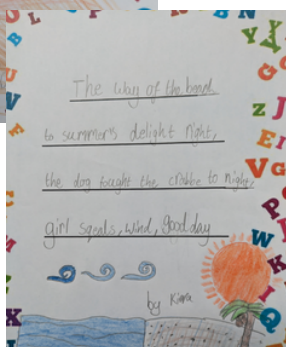 The way of the beach
to summer's delight night,
the dog fought the crabbe to night,
girl squeals, wind, good day
by Kiara